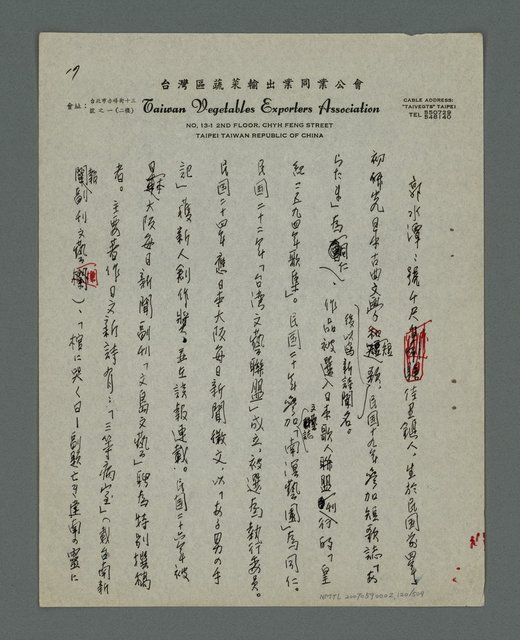 17
台灣區蔬菜輸出業同業公會
會址：台北市赤峰街十三號之一(二樓)
Taiwan Vegetables Exporters Association
NO. 13-1 2ND FLOOR, CHYH FENG STREET
TAIPEI TAIWAN REPUBLIC OF CHINA
CABLE ADDRESS:
"TAIVEGTS" TAIPEI
TEL 550729
548140
郭水潭：號千尺，佳里鎮人。生於民国前四年
初係先日本古典文學短歌，民国十九年參加短歌誌「あ
後以寫新詩聞名。
らたま」為同仁，作品被選入日本歌人聯盟刊行的「皇
紀二五九四年歌集」。民国二十年參加「南溟藝園」為同仁。
文學誌
民国二十三年「台湾文藝聯盟」成立，被選為執行委員。
民国二十四年應日本大阪每日新聞徵文，以「ある男の手
記」獲新人創作獎。並在該報連載。民国二十六年被
日本大阪每日新聞副刊「文島文藝」聘為特別撰稿
者。主要著作日文新詩有：「三等病室」（載台南新
報副刊文藝欄）、「棺に哭く日—副題亡き建南の靈に
NMTL 20070590002, 120/504